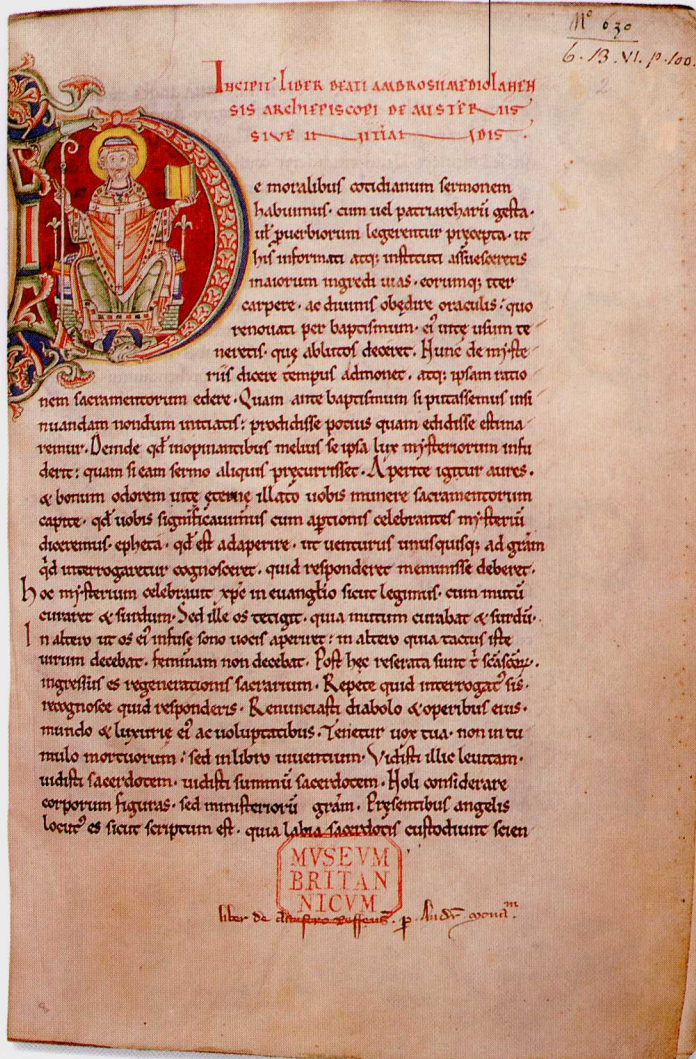 Nº 630
6. B. VI. p. 100.
2
INCIPIT LIBER BEATI AMBROSII MEDIOLANEN
SIS ARCHIEPISCOPI DE MISTERIIS
SIVE INITIANDIS.
De moralibus cotidianum sermonem
habuimus. cum uel patriarcharū gesta.
ul̄ ꝓuerbiorum legerentur pręcepta. ut
his informati atq; instituti assuesceretis
maiorum ingredi uias. eorumq; iter
carpere. ac diuinis obędire oraculis: quo
renouati per baptismum. ei uitę usum te
neretis. quę ablutos deceret. Nunc de myste
riis dicere tempus admonet. atq; ipsam ratio
nem sacramentorum edere. Quam ante baptismum si putassemus insi
nuandam nondum initiatis: prodidisse potius quam edidisse estima
remur. Deinde qd̄ inopinantibus melius se ipsa lux mysteriorum infu
derit: quam si eam sermo aliquis pręcurrisset. Aperite igitur aures.
& bonum odorem uitę ęternę illato uobis munere sacramentorum
capite. qd̄ uobis significauimus cum aꝑtionis celebrantes mysteriū
diceremus. epheta. qd̄ est adaperire. ut uenturus unusquisq; ad gr̄am
qd̄ interrogaretur cognosceret. quid responderet meminisse deberet.
Hoc mysterium celebrauit xp̄c in euanglio sicut legimus. cum mutū
curaret & surdum. Sed ille os tetigit. quia mutum curabat & surdū.
In altero ut os ei infusę sono uocis aperiret: in altero quia tactus iste
uirum decebat. feminam non decebat. Post hęc reserata sunt t̄ sc̄a sc̄oꝝ.
ingressus es regenerationis sacrarium. Repete quid interrogat' sis.
recognosce quid responderis. Renunciasti diabolo & operibus eius.
mundo & luxurię ei ac uoluptatibus. Tenetur uox tua. non in tu
mulo mortuorum: sed in libro uiuentium. Vidisti illic leuitam.
uidisti sacerdotem. uidisti summū sacerdotem. Noli considerare
corporum figuras. sed ministeriorū gr̄am. Pręsentibus angelis
locut' es sicut scriptum est. quia labia sacerdotis custodiunt scien
MVSEVM
BRITAN
NICVM
liber de claustro Roffens̄. ꝑ. Andr̄. monach̄.